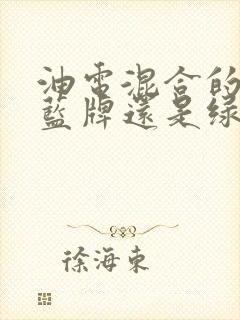 油電混合的
藍牌還是綠
徐海東